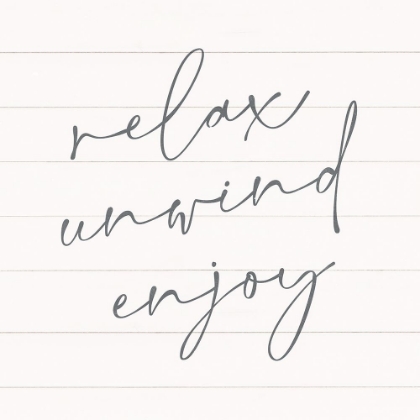 relax
unwind
enjoy